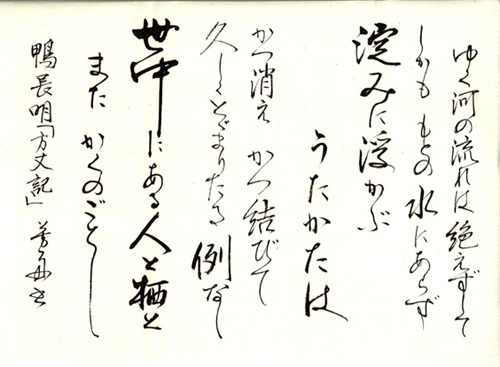 ゆく河の流れは 絶えずして
しかも もとの 水にあらず
淀みに浮かぶ
うたかたは
かつ消え かつ結びて
久しくとゞまりたる 例なし
世中にある 人と栖と
また かくのごとし
鴨長明「方丈記」